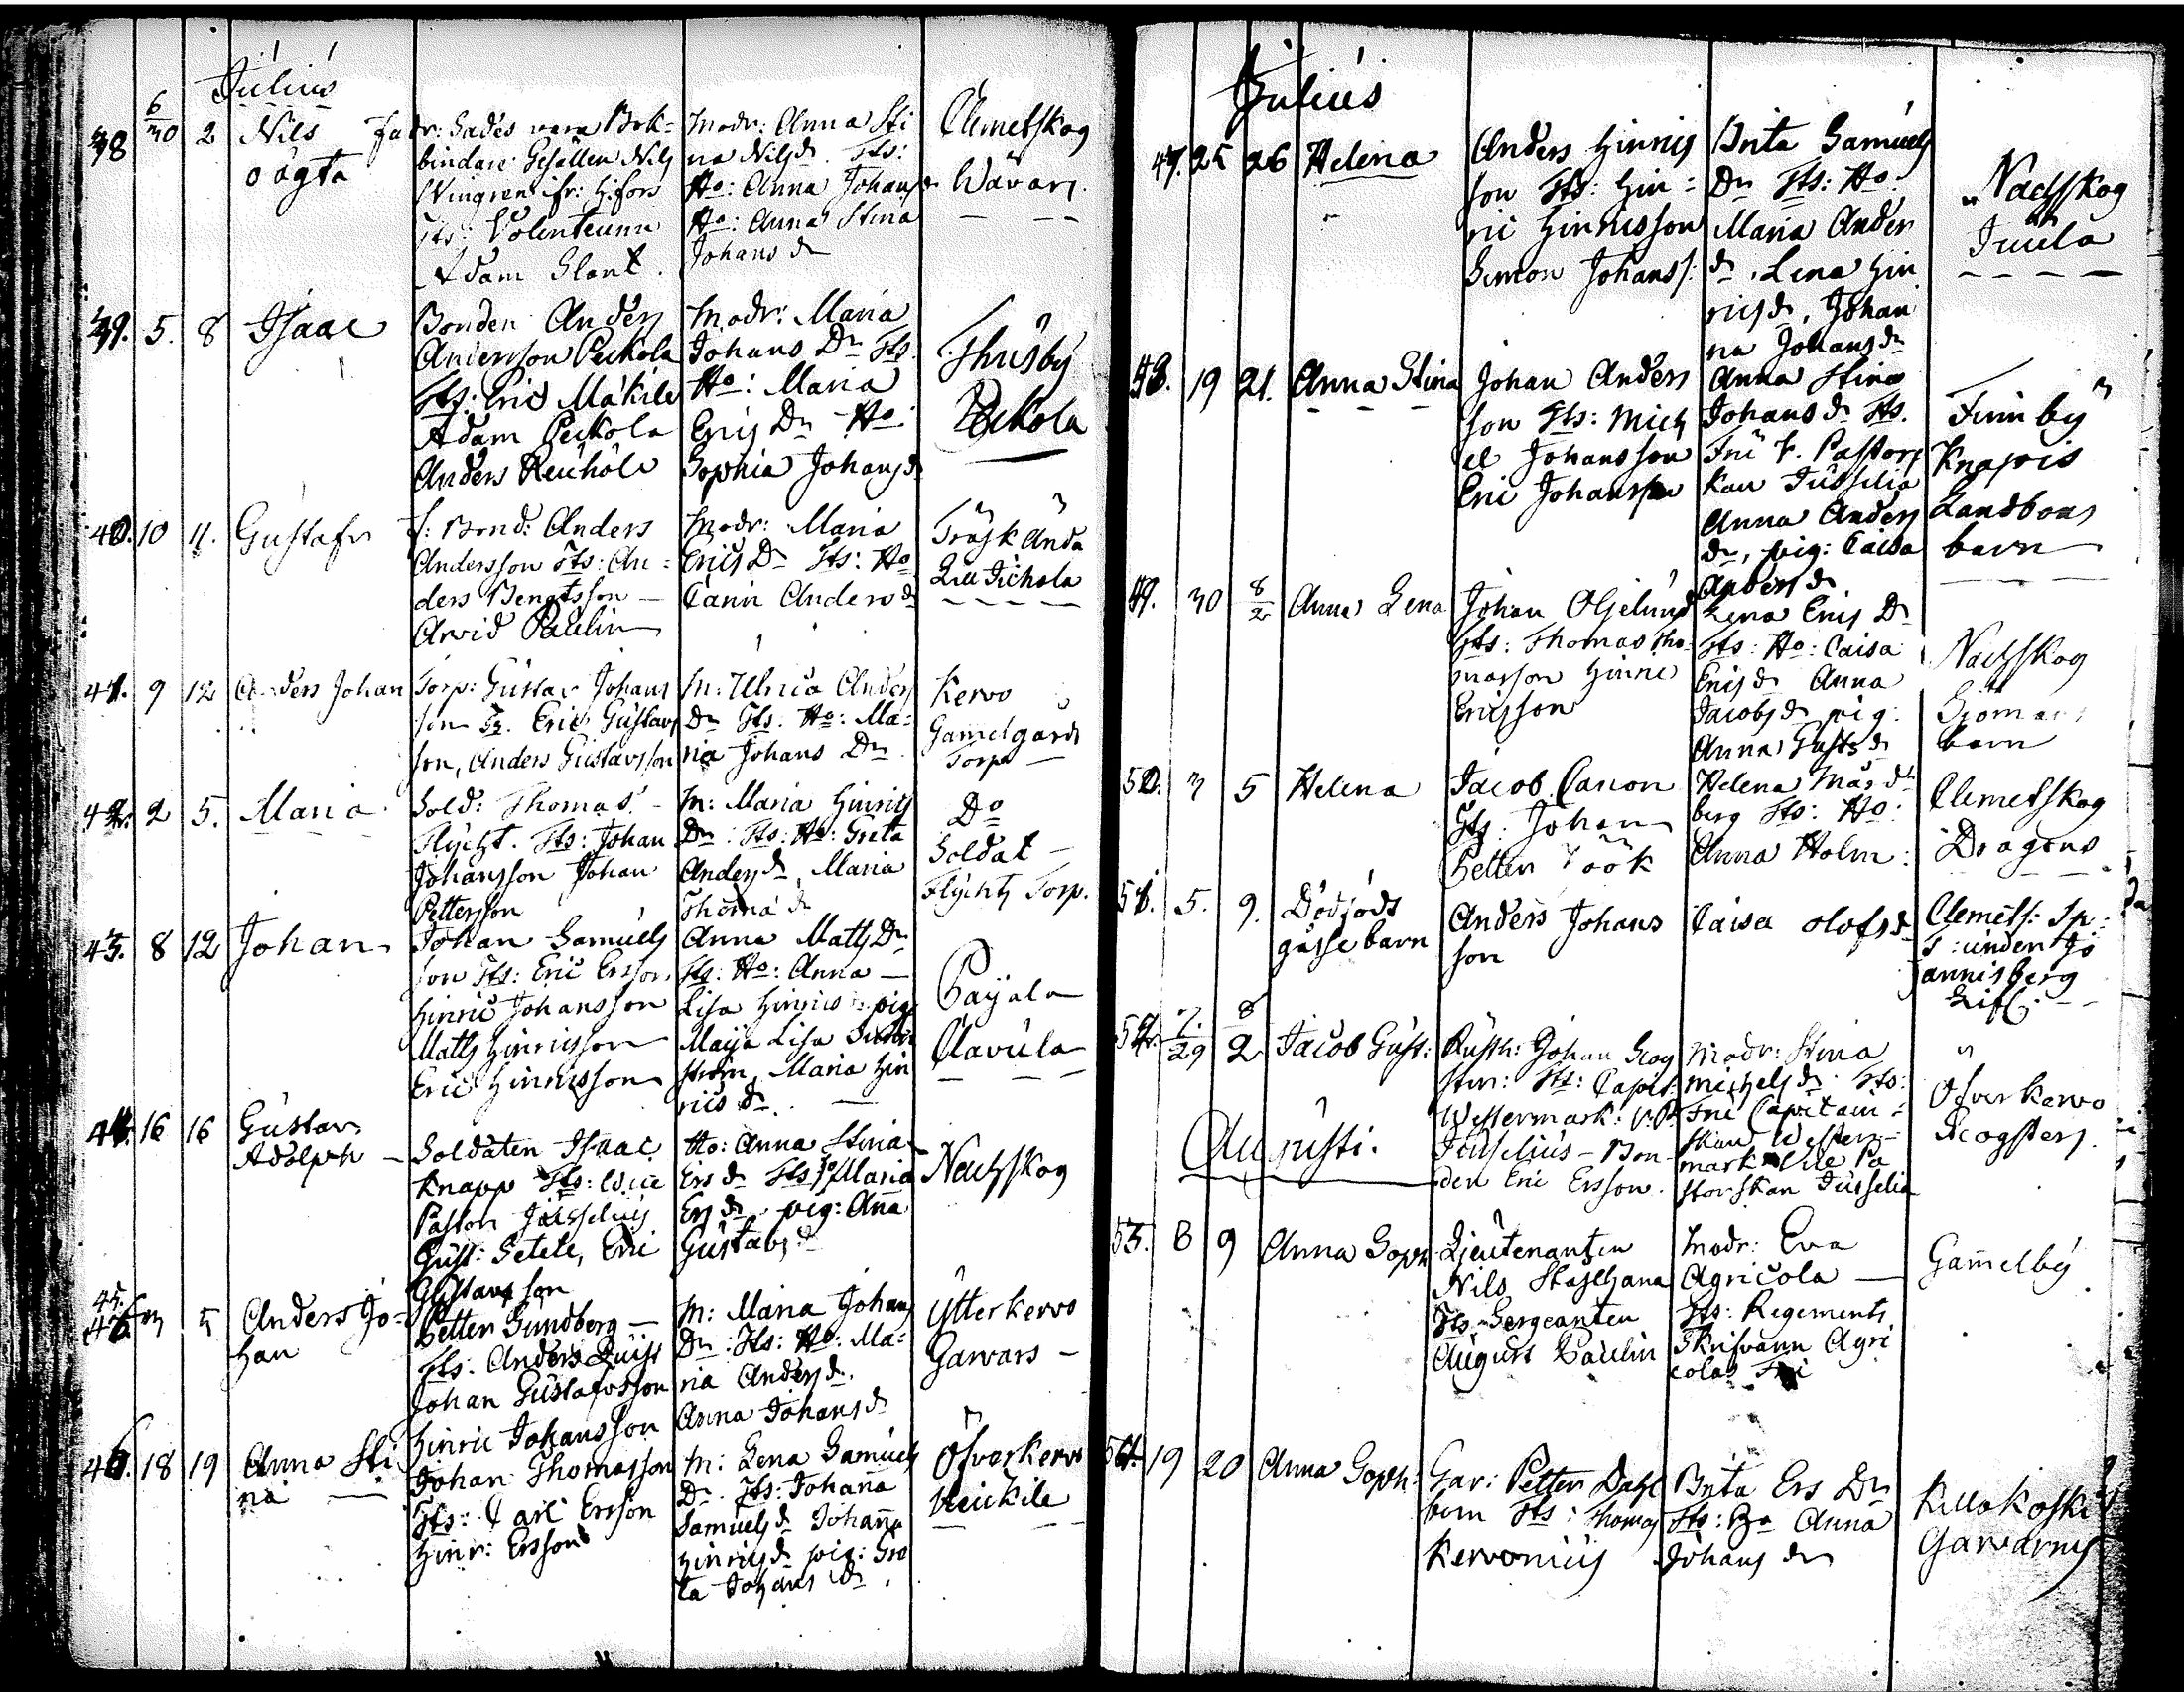 Julius
38 6/30 2 Nils oägta
fadr: Sades vara Bok-
bindare Gesällen Nils
Wingren ifr: H:fors
Fts: Volenteuren
Adam Glant.
Modr: Anna Sti
na Nilsdr. Fts:
Ho: Anna Johansdr
Ho: Anna Stina
Johans dr
Clemetskog
Wävars
39. 5. 8 Isaac
Bonden Anders
Andersson Peckola
Fts: Eric Mákile
Adam Peckola
Anders
Modr: Maria
Johans Dr Fts
Ho: Maria
Erics Dr Ho
Sophia Johansdr
Thusby
Peckola
40. 10 11. Gustafv
f: Bond: Anders
Andersson Fts: An-
ders Bengtsson
Arvid Paulin
Modr: Maria
Erics Dr Fts: Ho
Carin Andersdr
Träsk Ända
Lill Jichola
41. 9 12 Anders Johan
Torp: Gustav Johans
son Fts. Eric Gustavs
son, Anders Gustavsson
M: Ulrica Anders
Dr Fts. Ho: Ma-
ria Johans Dr
Kervo
Gamelgårds
Torp
42. 2 5. Maria
Sold: Thomas
Flycht. Fts: Johan
Johansson Johan
Pettersson
M: Maria Hinrics
Dr: Fts: Ho: Greta
Andersdr, Maria
Thoma dr
Do
Soldat
Flychts Torp.
43. 8 12 Johan
Johan Samuels
son Fts: Eric Ersson
Hinric Johansson
Matts Hinricsson
Eric Hinricsson
Anna Matts Dr
Fts: Ho: Anna
Lisa Hinrics pig
Maija Lisa
ström, Maria Hin
rics dr.
Paijala
Clavula
44. 16 16 Gustav
Adolph
Soldaten Isaac
Knapp Fts: Vice
Pastor Jusselius
Gust: Setele, Eric
Gustavsson
Ho: Anna Stina
Ers dr Fts Ho Maria
Ers dr. pig: Ana
Gustavs dr
Nachskog
45. 3 5 Anders Jo-
han
Petter Sundberg
Fts: Anders Quist
Johan Gustafvsson
Hinric Johansson
M: Maria Johans
Dr Fts: Ho: Ma-
ria Andersdr.
Anna Johansdr
Ytterkervo
Garvars
46. 18 19 Anna Sti
na
Johan Thomasson
Fts: Carl Ersson
Hinr: Ersson
M: Lena Samuels
Dr. Fts: Johana
Samuelsdr Johanna
Hinricsdr pig: Gre
ta Johans dr.
Öfverkervo
Heickile
Julius
47. 25 26 Helena
Anders Hinrics
son Fts: Hin-
ric Hinricsson
Simon Johanss:
Brita Samuels
Dr Fts: Ho:
Maria Anders
dr, Lena Hin
ricsdr, Johan
na Johansdr
Nachskog
Juula
48. 19 21. Anna Stina
Johan Anders
son Fts: Mich
el Johansson
Eric Johansson
Anna Stina
Johansdr Fts.
Fru V. Pastors
kan Jusselia
Anna Anders
Dr, pig: Caisa
Andersdr
Finnby
Knapis
Landbons
barn
49. 30 8/2 Anna Lena
Johan Oljelund
Fts: Thomas Tho-
masson Hinric
Ericsson
Lena Erics Dr
Fts: Ho: Caisa
Ericsdr Anna
Jacobsdr pig:
Anna Gustsdr
Nachskog
Sjömans
barn
50. 3 5 Helena
Jacob Canon
Fts: Johan
Petter Töök
Helena Måsdr
berg Fts: Ho:
Anna Holm:
Clemetskog
Dragons
51. 5. 9. Dödföds
gosse barn
Anders Johans
son
Caisa Olofsdr
Clemets: Tp:
under Jo
annisberg
52. 7./29 8/2 Jacob Gust:
Rusth: Johan Scog
ster: Fts: Capit:
Westermark: V.P.
Jusselius - Bon-
den Eric Ersson.
Modr: Stina
Michelsdr Fts:
Fru Capitain-
skan Wester-
mark Vice Pa
storskan Jusselia
Öfverkervo
Scogsters.
Augusti.
53. 8 9 Anna Soph
Lieutenanten
Nils Stahlhana
Fts: Sergeanten
August Paulin
Modr: Eva
Agricola
Fts: Regements
Skrifvarin Agri
colas Fru
Gamelby
54. 19 20 Anna Soph:
Gar: Petter Dahl
bom Fts: Thomas
Kervonius
Brita Ers Dr
Fts: Ho Anna
Johans dr
Kellokoski
Garvarns